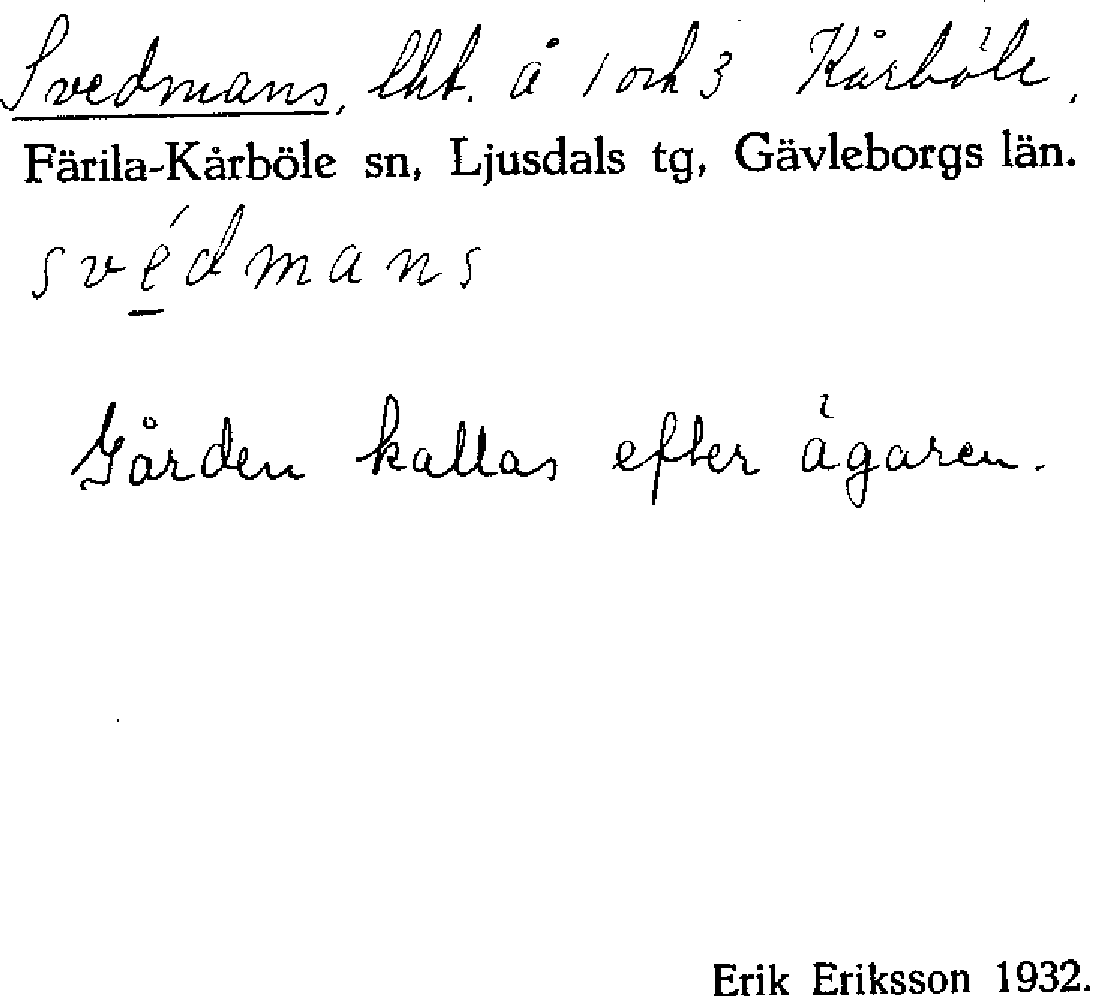 Svedmans, lht. å 1 och 3 Kårböle,
Färila-Kårböle sn, Ljusdals tg, Gävleborgs län.
své̱dmans
Gården kallas efter ägaren.
Erik Eriksson 1932.